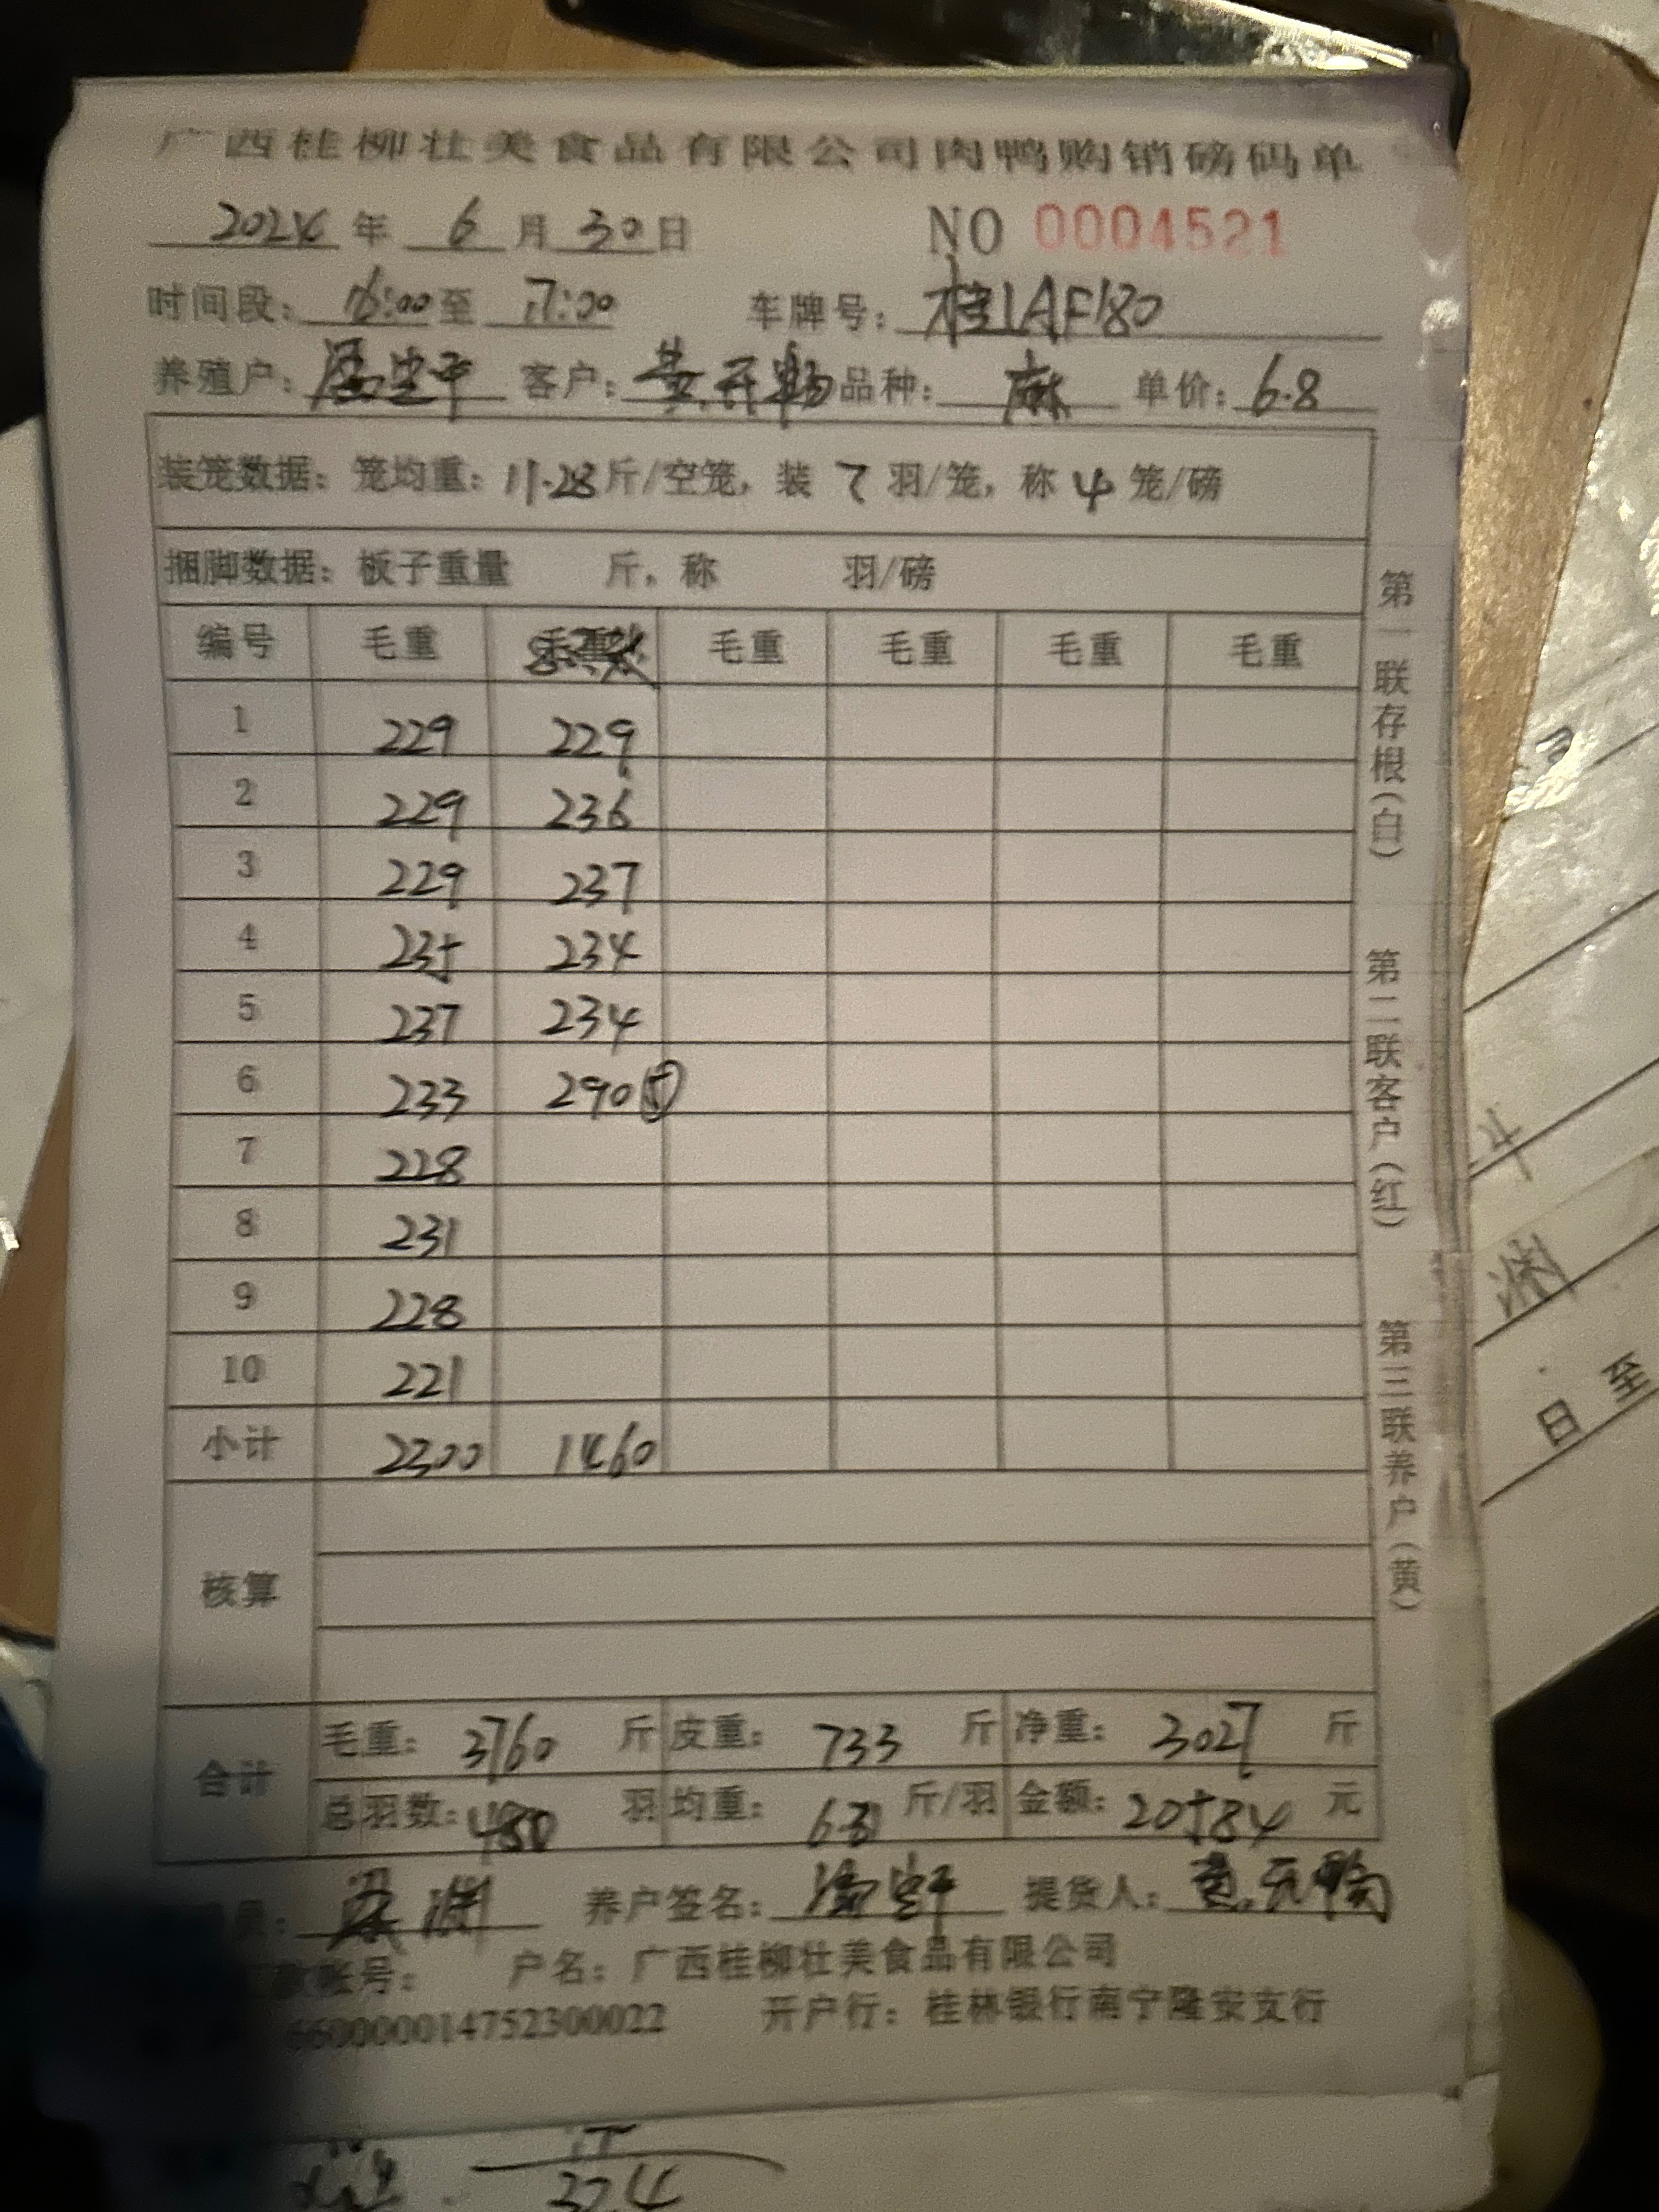 广西桂柳壮美食品有限公司肉鸭购销磅码单
2024年 6月30日 NO 0004521
时间段: 6:00至 7:00 车牌号: 桂1AF180
养殖户: 客户: 黄 品种: 麻 单价: 6.8
装笼数据: 笼均重: 11.28斤/空笼, 装 7 羽/笼, 称 4 笼/磅
捆脚数据: 板子重量 斤, 称 羽/磅
编号 毛重 毛重 毛重 毛重 毛重
1 229 229
2 229 236
3 229 237
4 235 234
5 237 234
6 233 290 ⑤
7 228
8 231
9 228
10 221
小计 2300 1460
核算
合计 毛重: 3760 斤 皮重: 733 斤 净重: 3027 斤
总羽数: 480 羽 均重: 6.31 斤/羽 金额: 20584 元
员: 渊 养户签名: 提货人: 黄
账号: 户名: 广西桂柳壮美食品有限公司
660000014752300022 开户行: 桂林银行南宁隆安支行
第一联存根(白)
第二联客户(红)
第三联养户(黄)
渊
日 至
324